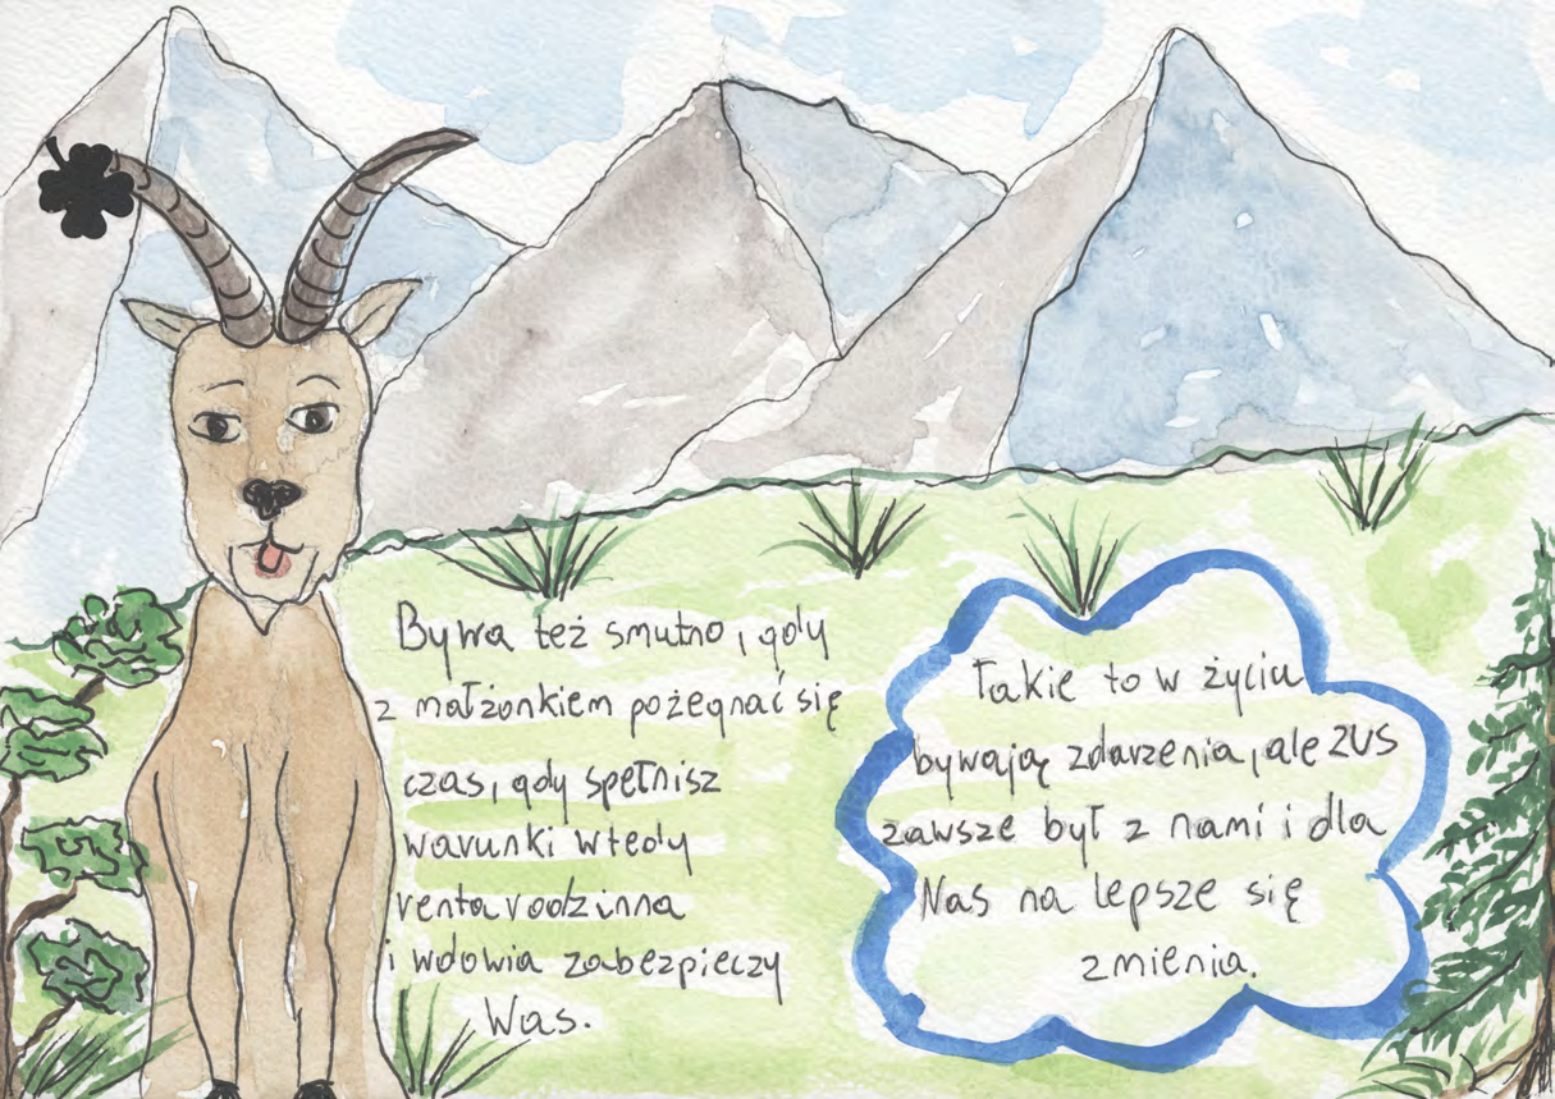 Bywa też smutno, gdy
z małżonkiem pożegnać się
czas, gdy spełnisz
warunki wtedy
renta rodzinna
i wdowia zabezpieczy
Was.
Takie to w życiu
bywają zdarzenia, ale ZUS
zawsze był z nami i dla
Nas na lepsze się
zmienia.